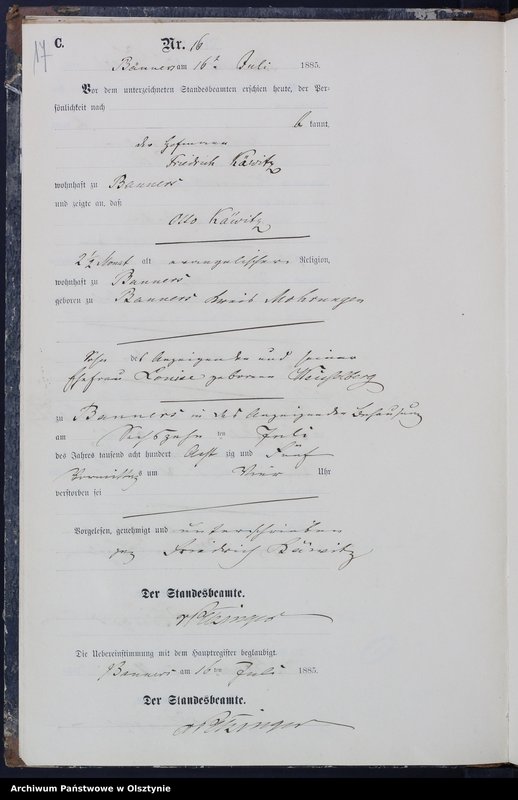 17
C.
Nr. 16
Banners am 16ten Juli 1885.
Vor dem unterzeichneten Standesbeamten erschien heute, der Per-
sönlichkeit nach
be kannt,
der Hofmann
Friedrich Käwitz
wohnhaft zu Banners
und zeigte an, daß
Otto Käwitz
2 1/2 Monat alt evangelischer Religion,
wohnhaft zu Banners
geboren zu Banners Kreis Mohrungen
Sohn des Anzeigenden und seiner
Ehefrau Louise geborene
zu Banners in des Anzeigenden Behausung
am Sechszehn ten Juli
des Jahres tausend acht hundert Acht zig und Fünf
Vormittags um Vier Uhr
verstorben sei
Vorgelesen, genehmigt und unterschrieben
gez Friedrich Käwitz
Der Standesbeamte.
Die Uebereinstimmung mit dem Hauptregister beglaubigt.
Banners am 16ten Juli 1885.
Der Standesbeamte.
Archiwum Państwowe w Olsztynie